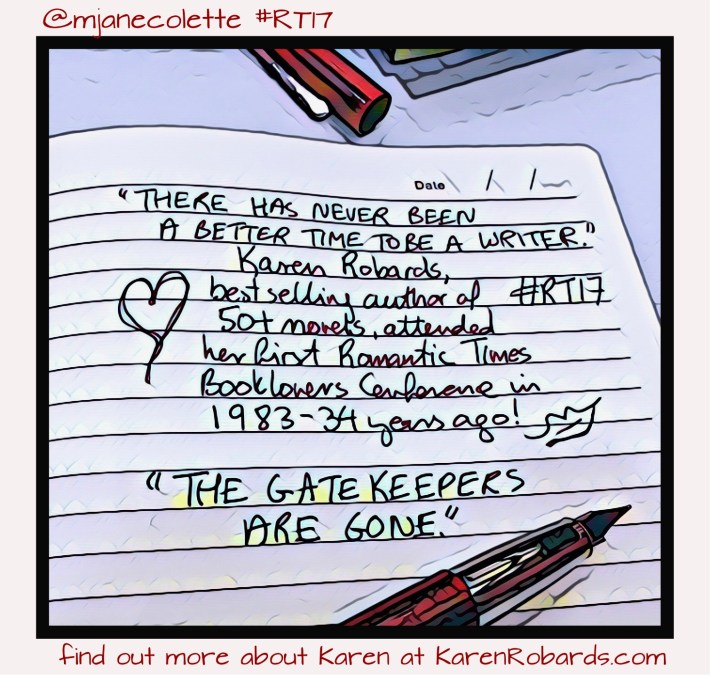 @mjanecolette #RT17
Date / /
"THERE HAS NEVER BEEN
A BETTER TIME TO BE A WRITER."
Karen Robards,
bestselling author of #RT17
50+ novels, attended
her first Romantic Times
Booklovers Conference in
1983-34 years ago!
"THE GATEKEEPERS
ARE GONE."
find out more about Karen at KarenRobards.com